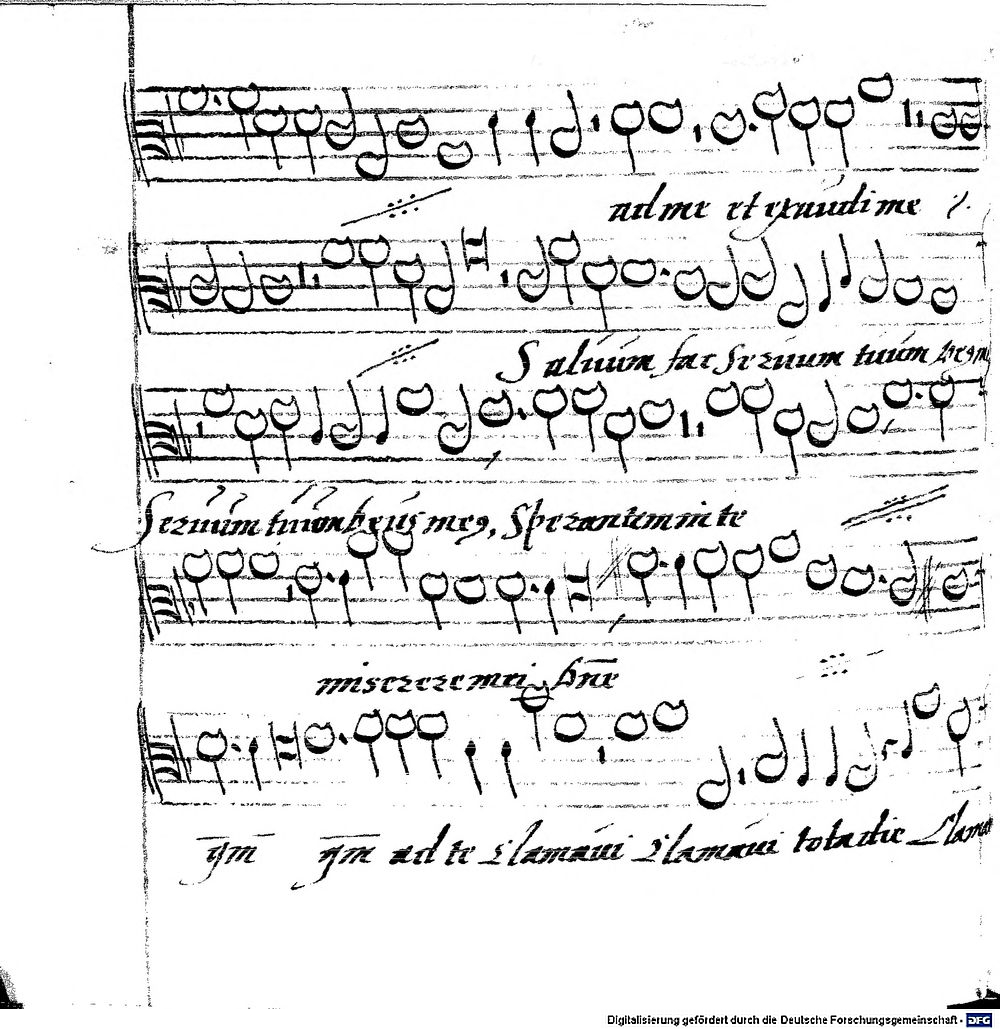 ad me et exaudi me
Salvum fac servum tuum
servum tuum deus meus, sperantem in te
miserere mei dn̄e
qm̄ qm̄ ad te clamavi clamavi tota die clama
Digitalisierung gefördert durch die Deutsche Forschungsgemeinschaft - DFG